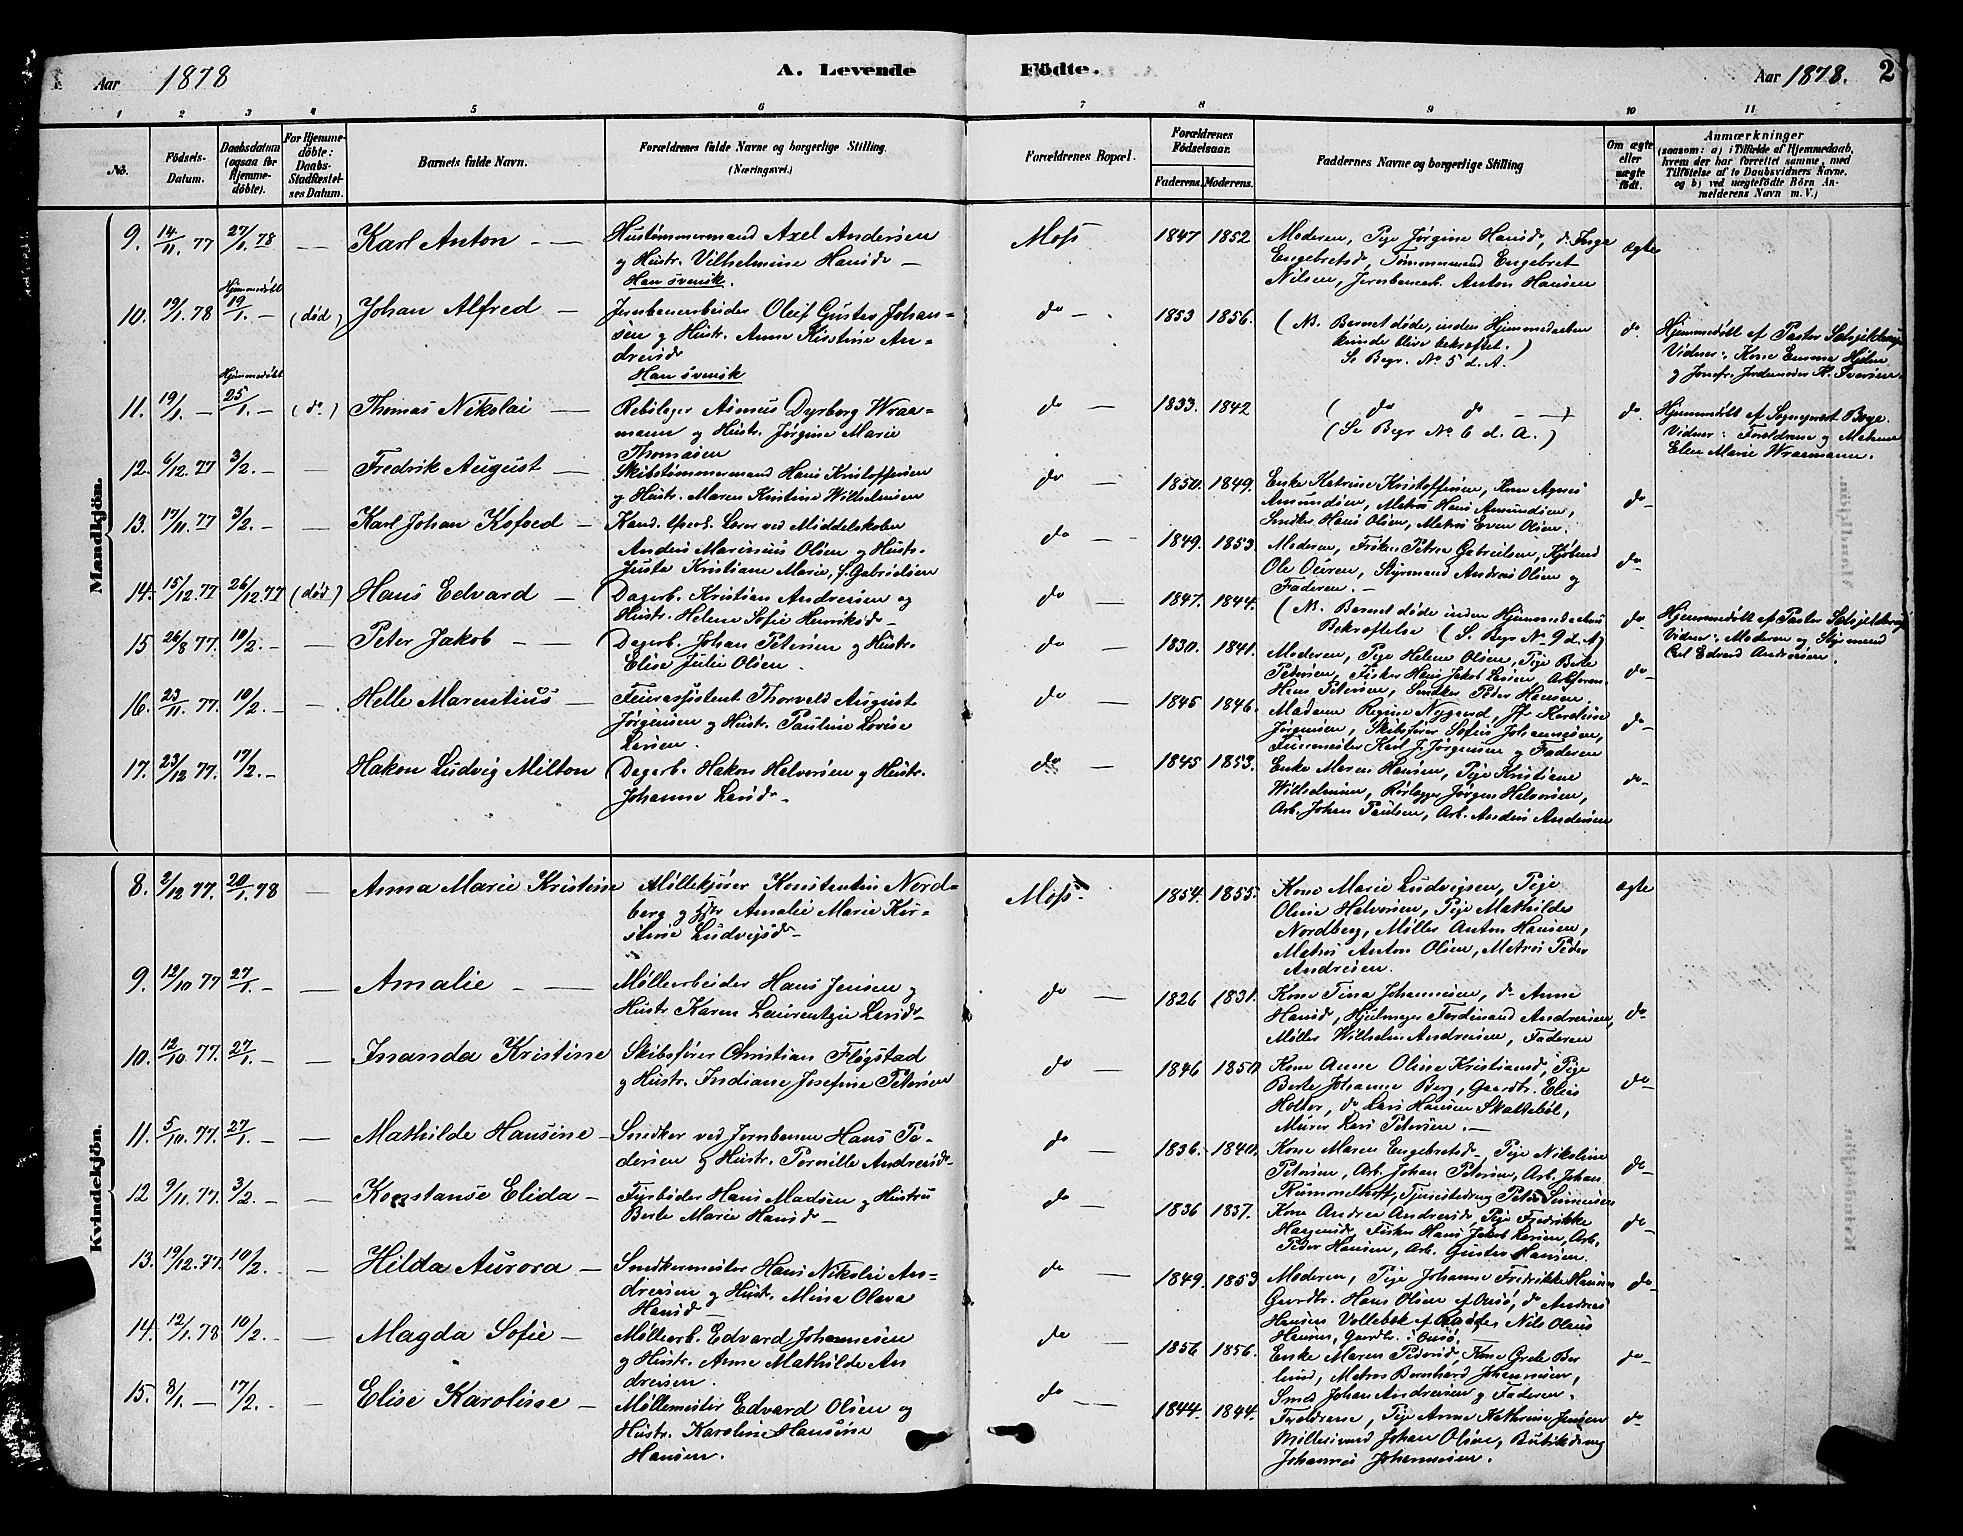 Aar 1878 A. Levende Födte. Aar 1878. 2
1 2 3 4 5 6 7 8 9 10 11
No.
Födsels-Datum.
Daabsdatum (ogsaa for Hjemmedöbte).
For Hjemmedöbte: Daabs-Stadfæstelses Datum.
Barnets fulde Navn.
Forældrenes fulde Navne og borgerlige Stilling (Næringsvei.)
Forældrenes Bopæl.
Forældrenes Födselsaar. Faderens. Moderens.
Faddernes Navne og borgerlige Stilling
Om ægte eller uægte födt.
Anmærkninger
(saasom: a) i Tilfælde af Hjemmedaab, hvem der har forrettet samme, med Tilföielse af to Daabsvidners Navne, og b) ved uægtefödte Börn Anmelderens Navn m. V.)
Mandkjön.
9. 14/11. 77 27/1. 78 — Karl Anton — Hustømmermand Axel Andersen
og Hustr. Vilhelmine Hansd. —
Han svensk.
Moss 1847 1852
Moderen, Pige Jørgine Hansd., do Inga
Engebretsd., Tømmermand Engebret
Nilsen, Jernbanearb. Anton Hansen
ægte
10. 19/1. 78 Hjemmedøbt 19/1. — (død) Johan Alfred — Jernbanearbeider Oluf Gustav Johan-
sen og Hustr. Anne Kristine An-
dreasd.
Han svensk
do — 1853 1856.
(NB. Barnet døde, inden Hjemmedaaben
kunde blive bekræftet.)
Se Begr. No 5 d. A.
do
Hjemmedøbt af Pastor
Vidner: Kone Emma Hjelm
og Jomfr. Jordemoder
11. 19/1. — Hjemmedøbt 25/1. — (do) Thomas Nikolai — Rebslager Asmus Dyrborg Wraa-
mann og Hustr. Jørgine Marie
Thomasen
do — 1833. 1842
( do do — )
(Se Begr No 6 d. A.)
do
Hjemmedøbt af Sognepræst
Vidner: Forældrene og Madame
Elen Marie Wraamann.
12. 6/12. 77 3/2. — Fredrik August — Skibstømmermand Hans Kristoffersen
og Hustr. Maren Kristine Wilhelmsen
do 1850. 1849.
Enke Katrine Kristoffersen, Kone Agnes
Amundsen, Matros Hans Amundsen,
Snedker Hans Olsen, Matros Even Olsen.
do
13. 17/11. 77 3/2. — Karl Johan Kofoed — Kand. theol. Lærer ved Middelskolen
Anders Marinius Olsen og Hustr.
Justa Kristiane Marie, f. Gabrielsen
do — 1849. 1853.
Moderen, Frøken Petra Gabrielsen, Kjøbmd
Ole Ouren, Styrmand Andreas Olsen og
Faderen. —
do
14. 15/12. 77 26/12. 77 (død) Hans Edvard — Dagarb. Kristian Andresen og
Hustr. Helene Sofie Henriksd. —
do — 1847. 1844.
(NB. Barnet døde inden Hjemmedaabens
Bekræftelse (S. Begr No 9 d. A)
do
Hjemmedøbt af Pastor
Vidner: Moderen og Styrmand
Carl Edvard Andreasen.
15 26/8 77. 10/2. — Peter Jakob — Dagarb. Johan Petersen og Hustr.
Elise Julie Olsen.
do — 1830. 1841.
Moderen, Pige Helene Olsen, Pige Berte
Petersen, Fisker Hans Jakob Larsen, Arbformd
Hans Petersen, Snedker Peter Hansen
do
16. 23/11. 77. 10/2. — Helle Marentius — Feierassistent Thorvald August
Jørgensen og Hustr. Pauline Lovise
Larsen.
do — 1845 1846.
Madame Regine Nygaard, Jfr. Karoline
Jørgensen, Skibsfører Sofus Johannesen,
Feiermester Karl J. Jørgensen og Faderen
do
17. 23/12 77. 17/2. — Hakon Ludvig Milton Dagarb. Hakon Halvorsen og Hustr.
Johanne Larsd. —
do — 1845 1853.
Enke Maren Hansen, Pige Kristiane
Wilhelmsen, Rørlægger Jørgen Halvorsen,
Arb. Johan Paulsen, Arb. Anders Andersen
do
Kvindekjön.
8. 2/12 77. 20/1. 78 — Anna Marie Kristine Møllekjører Konstantin Nord-
berg og Hstr Amalie Marie Kir-
stine Ludvigsd. —
Moss. 1854. 1855.
Kone Marie Ludvigsen, Pige
Oline Halvorsen, Pige Mathilde
Nordberg, Møller Anton Hansen,
Matros Anton Olsen, Matros Peder
Andresen.
ægte
9. 12/10 77 27/1. — Amalie — Møllearbeider Hans Jensen og
Hustr Karen Laurentze Larsd. —
do — 1826 1831.
Kone Tina Johannesen, do Anne
Hansd., Hjulmager Ferdinand Andresen,
Møller Wilhelm Andresen, Faderen
do
10. 12/10. 77. 27/1. — Inanda Kristine Skibsfører Christian Fløgstad
og Hustr. Indiane Josefine Petersen
do — 1846 1850
Kone Anne Oline Kristiansd, Pige
Berte Johanne Berg, Gaardbr. Elias
Holter, do Lars Hansen Skattebøl,
Murer Lars Petersen. —
do
11. 5/10. 77. 27/1. — Mathilde Hansine — Snedker ved Jernbanen Hans Pe-
dersen og Hustr. Pernille Andreasd. —
do — 1836. 1840.
Kone Maren Engebretsd., Pige Nikoline
Petersen, Arb. Johan Petersen, Arb. Johan
do
12 9/11. 77. 3/2. — Konstanse Elida — Fyrbøder Hans Madsen og Hustru
Berte Marie Hansd. —
do — 1836 1837.
Kone Andrea Andreasd., Pige Fredrikke
Haagensd., Fisker Hans Jakob Larsen, Arb.
Peder Hansen, Arb. Gustav Hansen
do
13. 19/12. 77. 10/2. — Hilda Aurora — Snedkermester Hans Nikolai An-
dresen og Hustr. Mina Olava
Hansd. —
do — 1849. 1853
Moderen, Pige Johanne Fredrikke Hansen
Gaardbr. Hans Olsen af Onsø, do Andreas
Hansen Vollebæk af Raade, Nils Olaus
Hansen, Gaardbr. i Onsø.
do
14. 12/1. 78 10/2. — Magda Sofie — Møllearb. Edvard Johannesen
og Hustr. Anne Mathilde An
dresen.
do — 1856 1856.
Enke Maren Pedersd, Kone Grete Ber
lund, Matros Bernhard Johannesen,
Smed Johan Andresen og Faderen.
do
15. 8/1. — 17/2. — Elise Karolisse — Møllemester Edvard Olsen og
Hustr. Karoline Hansine
Hansen.
do — 1844. 1844.
Forældrene, Pige Anne Kathrine Jensen
Møllersvend Johan Olsen, Butikdreng
Johannes Johannesen.
do